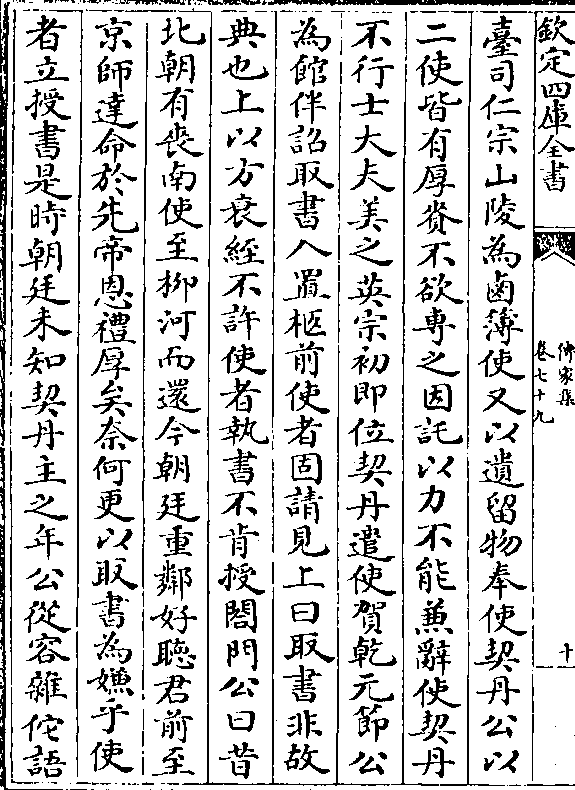 欽定四庫全書
傳家集
卷七十九
十
臺司仁宗山陵為鹵簿使又以遺留物奉使契丹公以
二使皆有厚賚不欲專之因託以力不能兼辭使契丹
不行士大夫美之英宗初即位契丹遣使賀乾元節公
為館伴詔取書入置柩前使者固請見上曰取書非故
典也上以方衰絰不許使者執書不肯授閤門公曰昔
北朝有喪南使至柳河而還今朝廷重鄰好聽君前至
京師達命於先帝恩禮厚矣奈何更以取書為嫌乎使
者立授書是時朝廷未知契丹主之年公從容雜佗語